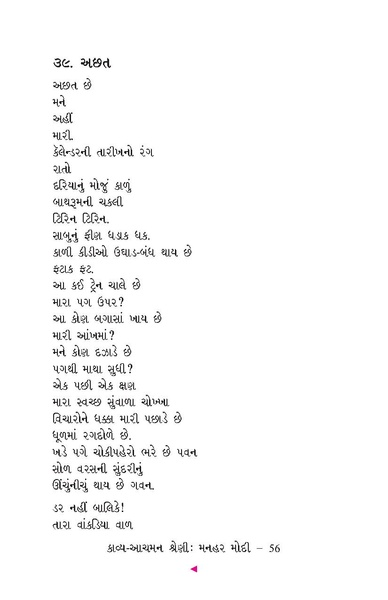 ૩૯. અછત
અછત છે
મને
અહીં
મારી.
કૅલેન્ડરની તારીખનો રંગ
રાતો
દરિયાનું મોજું કાળું
બાથરૂમની ચકલી
ટિરિન ટિરિન.
સાબુનું ફીણ ધડાક ધક.
કાળી કીડીઓ ઉઘાડ-બંધ થાય છે
ફટાક ફટ.
આ કઈ ટ્રેન ચાલે છે
મારા પગ ઉપર?
આ કોણ બગાસાં ખાય છે
મારી આંખમાં?
મને કોણ દઝાડે છે
પગથી માથા સુધી?
એક પછી એક ક્ષણ
મારા સ્વચ્છ સુંવાળા ચોખ્ખા
વિચારોને ધક્કા મારી પછાડે છે
ધૂળમાં રગદોળે છે.
ખડે પગે ચોકીપહેરો ભરે છે પવન
સોળ વરસની સુંદરીનું
ઊંચુંનીચું થાય છે ગવન.
ડર નહીં બાલિકે!
તારા વાંકડિયા વાળ
કાવ્ય-આચમન શ્રેણી: મનહર મોદી – 56